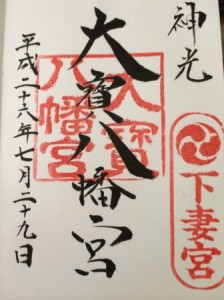 神光
下妻宮
大寳八幡宮
大寳
八幡宮
平成二十八年七月二十九日